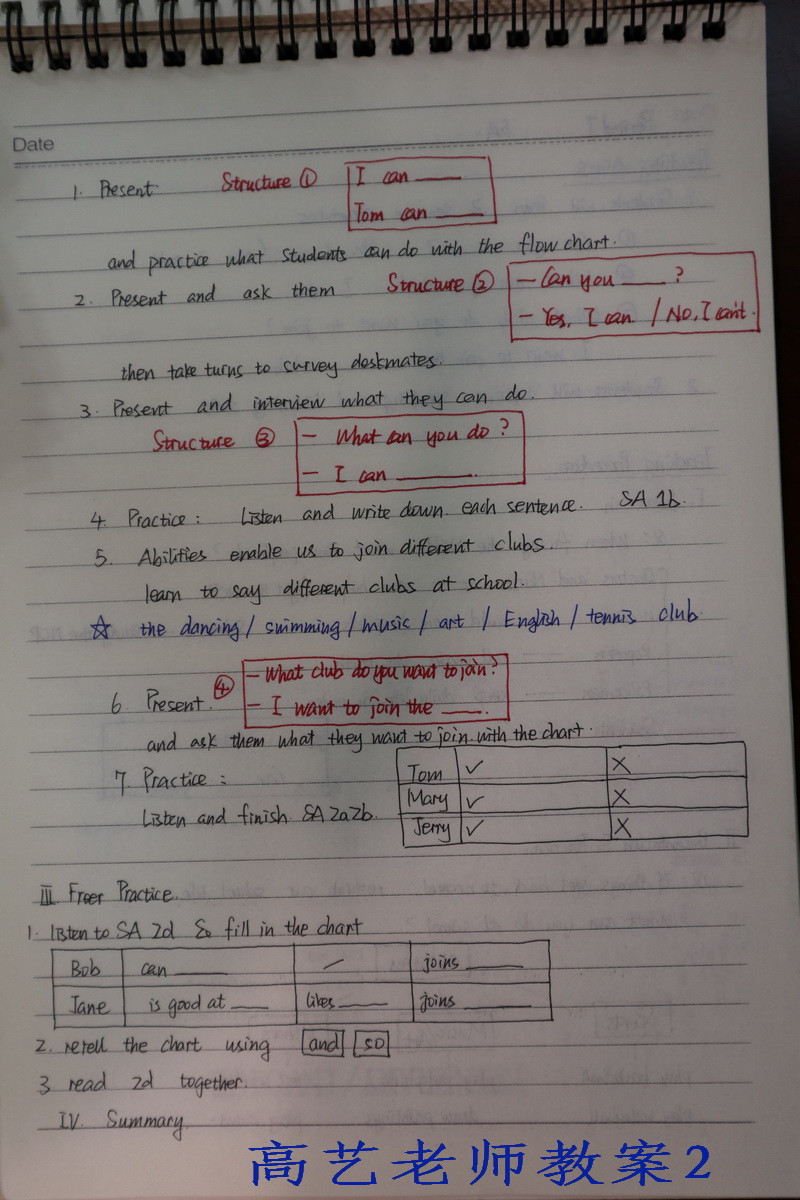 Date
1. Present Structure ① I can ____
Tom can ____
and practice what students can do with the flow chart.
2. Present and ask them Structure ② - Can you ____ ?
- Yes, I can / No, I can't.
then take turns to survey deskmates.
3. Present and interview what they can do.
Structure ③ - What can you do ?
- I can ____.
4. Practice: Listen and write down each sentence. SA 1b.
5. Abilities enable us to join different clubs.
learn to say different clubs at school.
☆ the dancing / swimming / music / art / English / tennis club
6. Present. ④ - What club do you want to join?
- I want to join the ____.
and ask them what they want to join with the chart.
7. Practice: Tom ✓ X
Listen and finish SA 2a2b. Mary ✓ X
Jerry ✓ X
III Freer Practice.
1. listen to SA 2d & fill in the chart
Bob can ____ / joins ____
Jane is good at ____ likes ____ joins ____
2. retell the chart using and so
3 read 2d together.
IV. Summary
高艺老师教案2